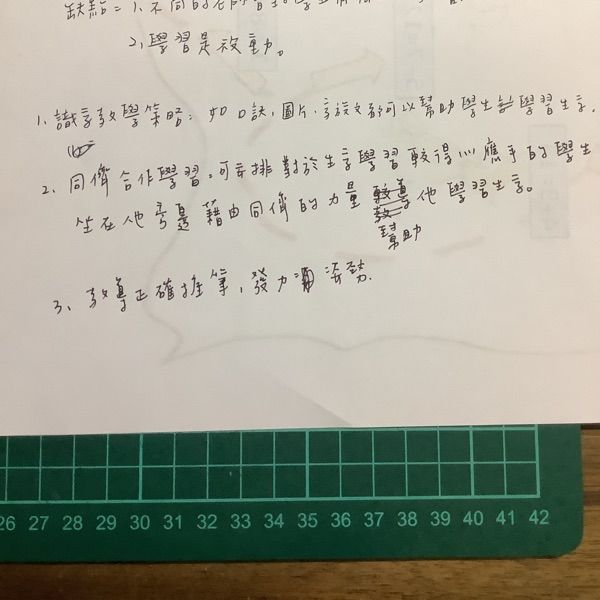 缺點=1.不同的老師
2.學習是被動。
1.識字教學策略:如口訣、圖片、字族文都可以幫助學生學習生字。
2.同儕合作學習:可安排對於生字學習較得心應手的學生
坐在他旁邊藉由同儕的力量 他學習生字。
幫助
3、教導正確推筆,發力 姿勢.
26 27 28 29 30 31 32 33 34 35 36 37 38 39 40 41 42